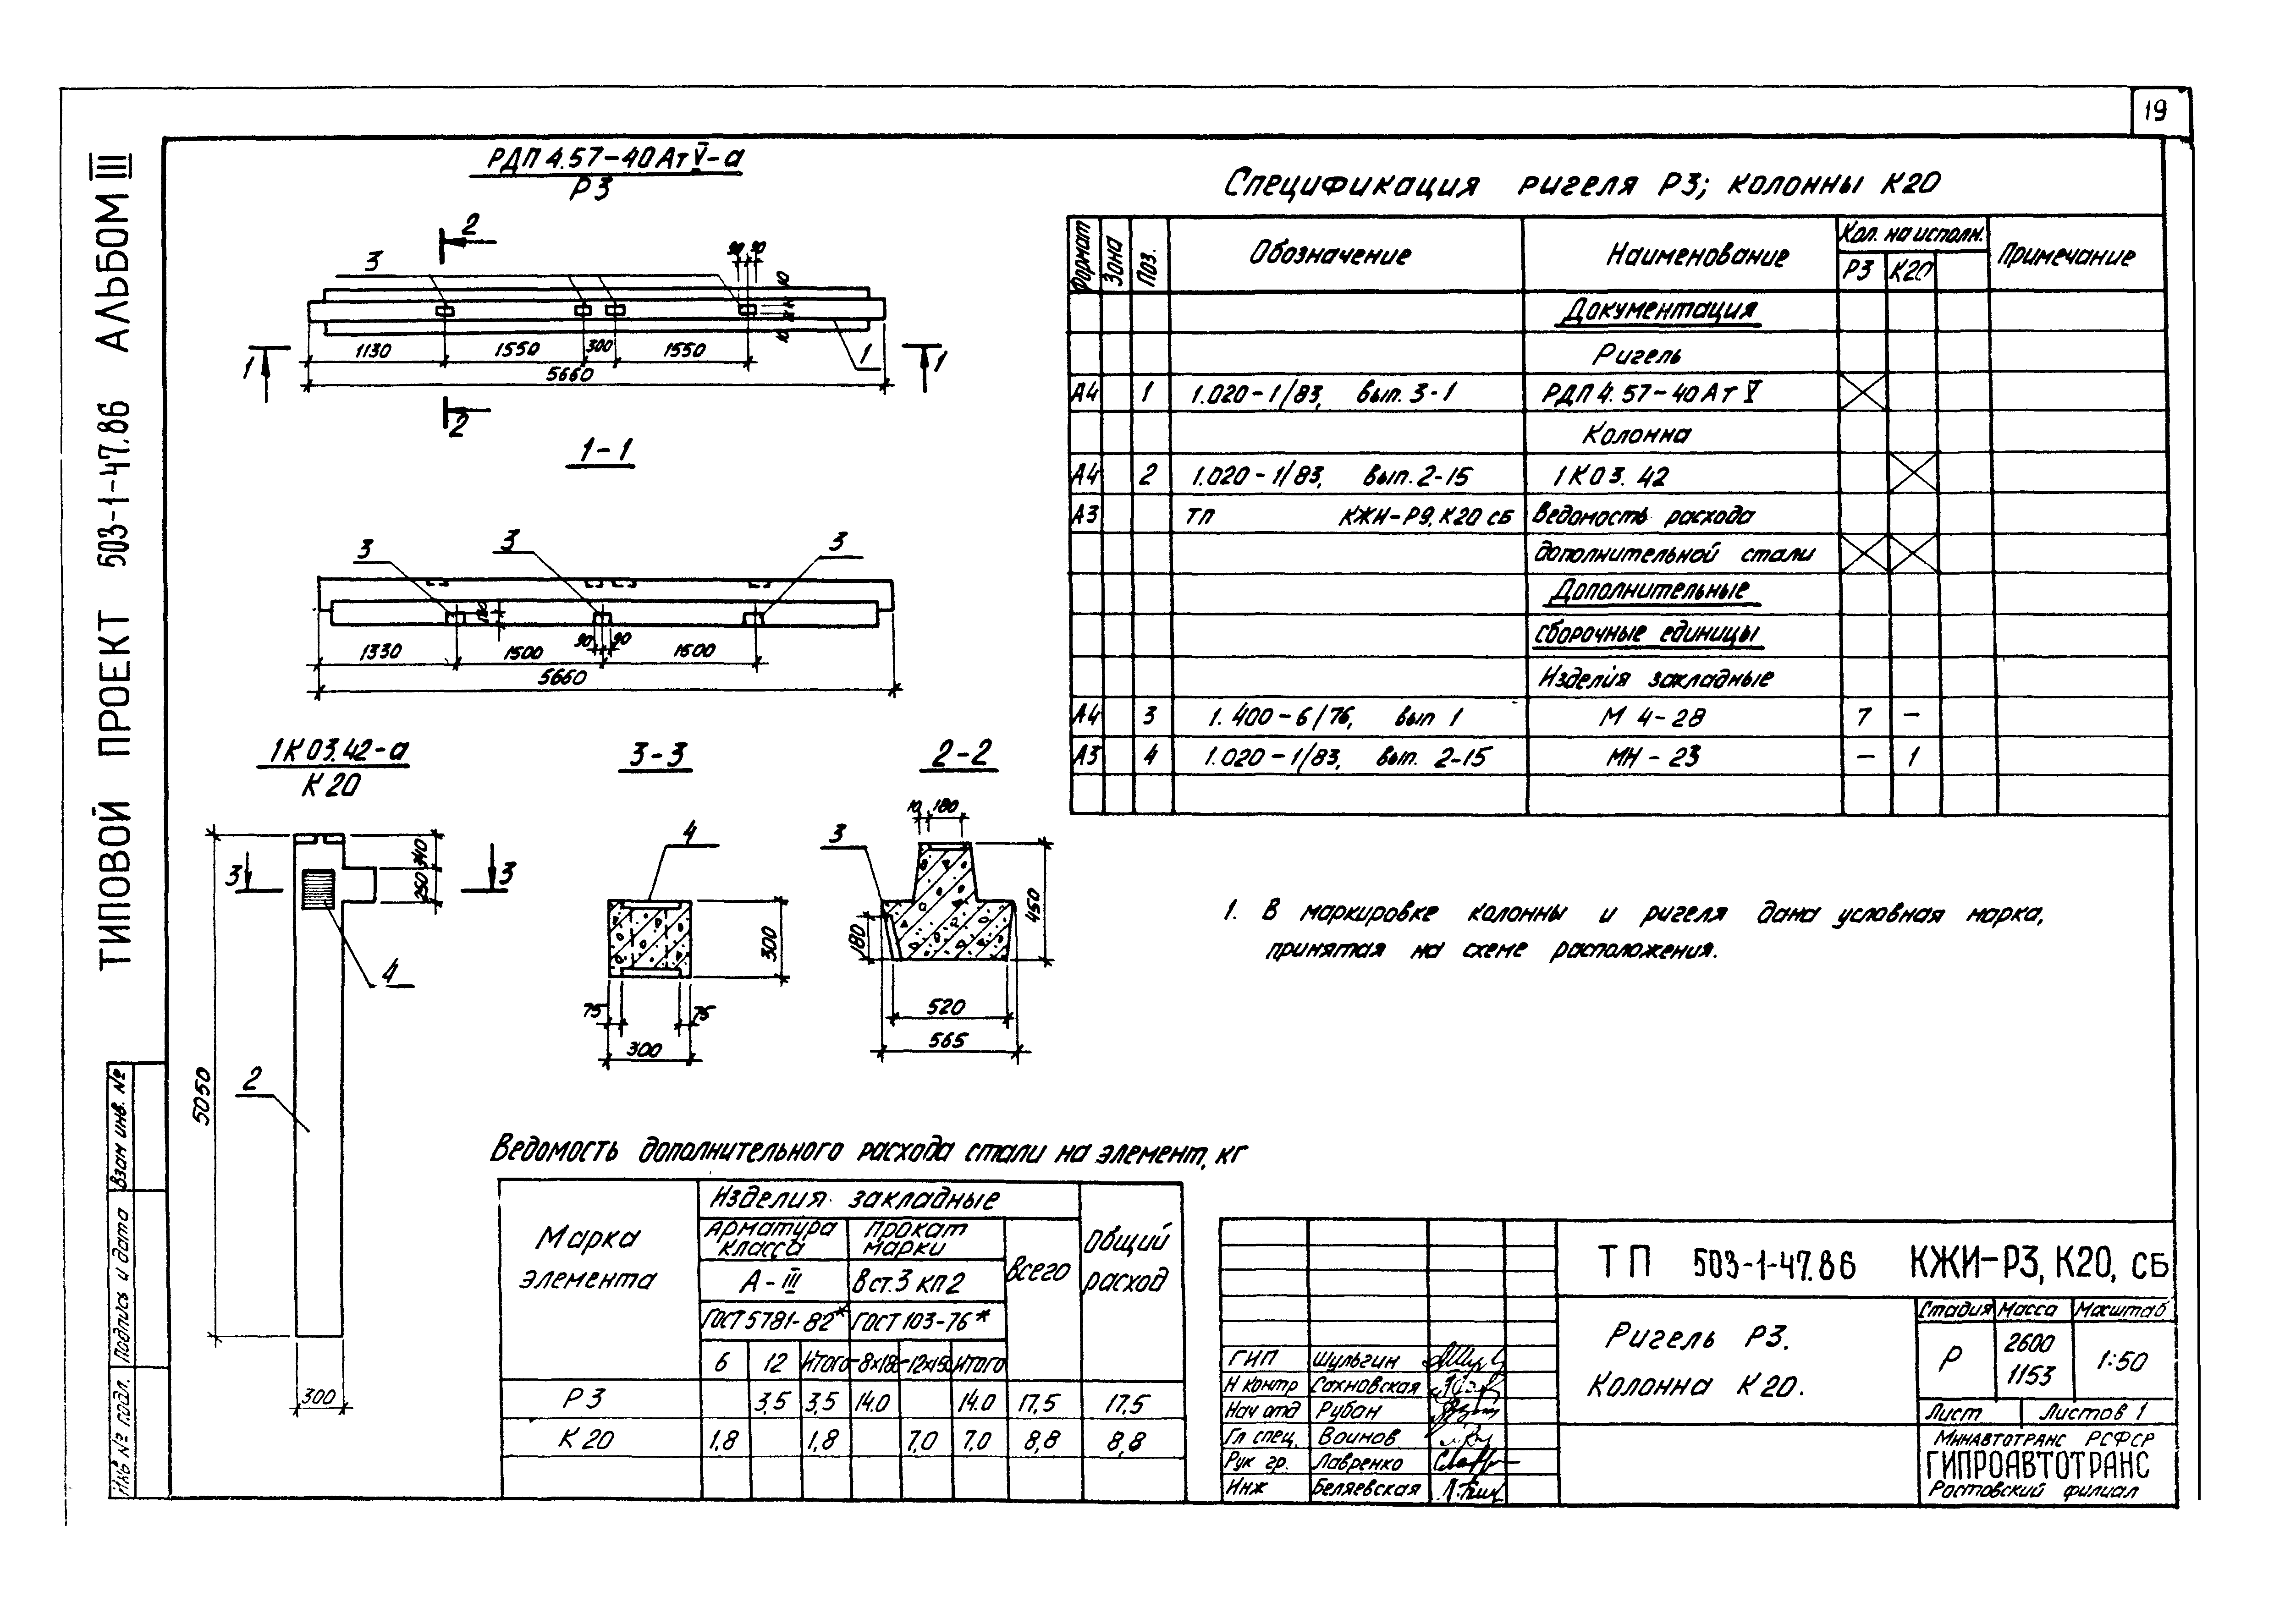 19
ТИПОВОЙ ПРОЕКТ 503-1-47.86 АЛЬБОМ III
РДП 4.57-40 Ат V-а
Р3
2
3
90 90
10
10
1130 1550 300 1550
5660
1 1
1
2
1-1
3 3 3
180
90 90
1330 1500 1500
5660
1К 03.42-а
К 20
3-3
2-2
3 3
340
250
4
2
5050
300
4
300
75 75
300
3
10 180
450
180
520
565
Спецификация ригеля Р3; колонны К20
Формат Зона Поз. Обозначение Наименование Кол. на исполн. Примечание
Р3 К20
Документация
Ригель
А4 1 1.020-1/83, вып. 3-1 РДП 4.57-40 Ат V
Колонна
А4 2 1.020-1/83, вып. 2-15 1К 03.42
А3 ТП КЖИ-Р9, К20 СБ Ведомость расхода
дополнительной стали
Дополнительные
сборочные единицы
Изделия закладные
А4 3 1.400-6/76, вып 1 М 4-28 7 –
А3 4 1.020-1/83, вып. 2-15 МН-23 – 1
1. В маркировке колонны и ригеля дана условная марка,
принятая на схеме расположения.
Ведомость дополнительного расхода стали на элемент, кг
Марка элемента
Изделия закладные
Общий расход
Арматура класса
Прокат марки
Всего
А-III
Вст.3 кп2
ГОСТ 5781-82*
ГОСТ 103-76*
6 12 Итого -8×180 -12×150 Итого
Р3 3,5 3,5 14.0 14.0 17,5 17,5
К 20 1,8 1,8 7,0 7,0 8,8 8,8
Взам инв. №
Подпись и дата
Инв № подл.
ТП 503-1-47.86 КЖИ-Р3, К20, СБ
Ригель Р3.
Колонна К20.
Стадия Масса Масштаб
Р 2600 1153 1:50
Лист Листов 1
Минавтотранс РСФСР
ГИПРОАВТОТРАНС
Ростовский филиал
ГИП Шульгин
Н контр Сахновская
Нач отд Рубан
Гл спец. Воинов
Рук гр. Лавренко
Инж Беляевская